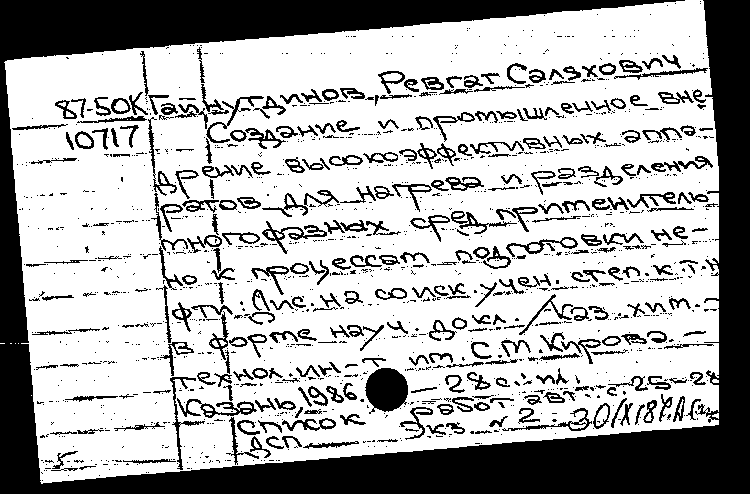 87-50К Гайнутдинов, Ревгат Саляхович.
10717 Создание и промышленное вне-
дрение высокоэффективных аппа-
ратов для нагрева и разделения
многофазных сред применитель-
но к процессам подготовки не-
фти: Дис. на соиск. учен. степ. к.т.н
в форме науч. докл. / Каз. хим.-
технол. ин-т им. С.М. Кирова. –
Казань, 1986. – 28 с.: ил.
Список работ авт.: с 25-28
ДСП. Экз. № 2. 30/XI 87г.
5